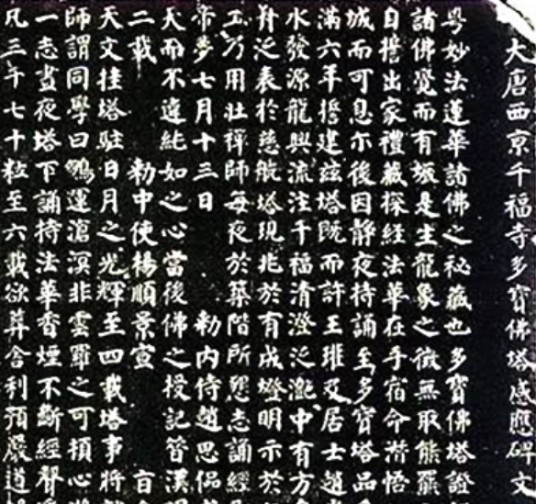 大唐西京千福寺多寶佛塔感應碑文
粵妙法蓮華諸佛之秘藏也多寶佛塔證
諸佛覺而有娠是生龍象之徵無取熊羆
自誓出家禮藏探經法華在手宿命潛悟
城而可息尒後因靜夜持誦至多寶塔品
滿六年誓建茲塔既而許王瓘及居士趙
水發源龍興流注千福清澄泛灔中有方
舟泛表於慈航塔現兆於有成燈明示於
工乃用壯禪師每夜於築階所懇志誦經
帝夢七月十三日 勅內侍趙思侃
天而不違純如之心當後佛之授記昔漢
二載 勅中使楊順景宣 百
天文挂塔駐日月之光輝至四載塔事將
師謂同學曰鵬運滄溟非雲羅之可頓心
一志晝夜塔下誦持法華香煙不斷經聲
凡三千七十粒至六載欲葬舍利預嚴道